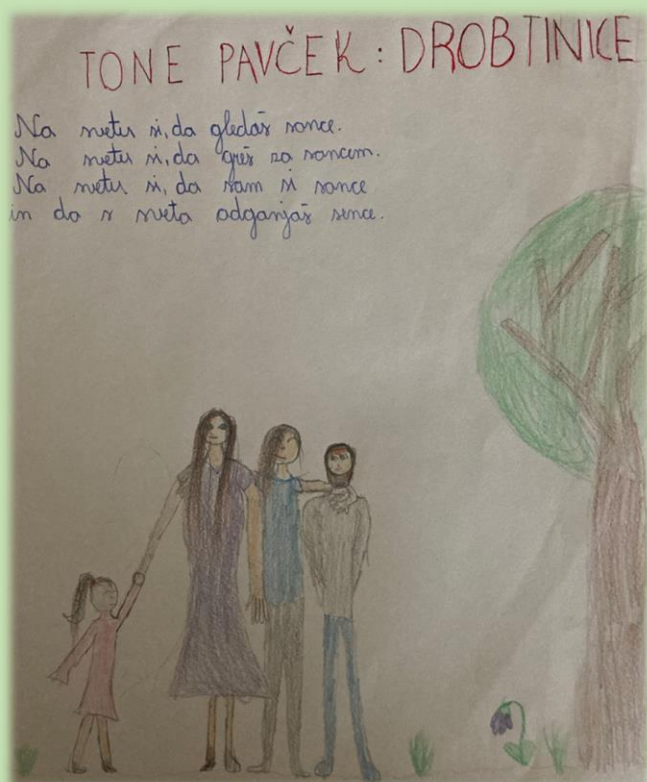 TONE PAVČEK: DROBTINICE
Na svetu si, da gledaš sonce.
Na svetu si, da greš za soncem.
Na svetu si, da sam si sonce
in da s sveta odganjaš sence.